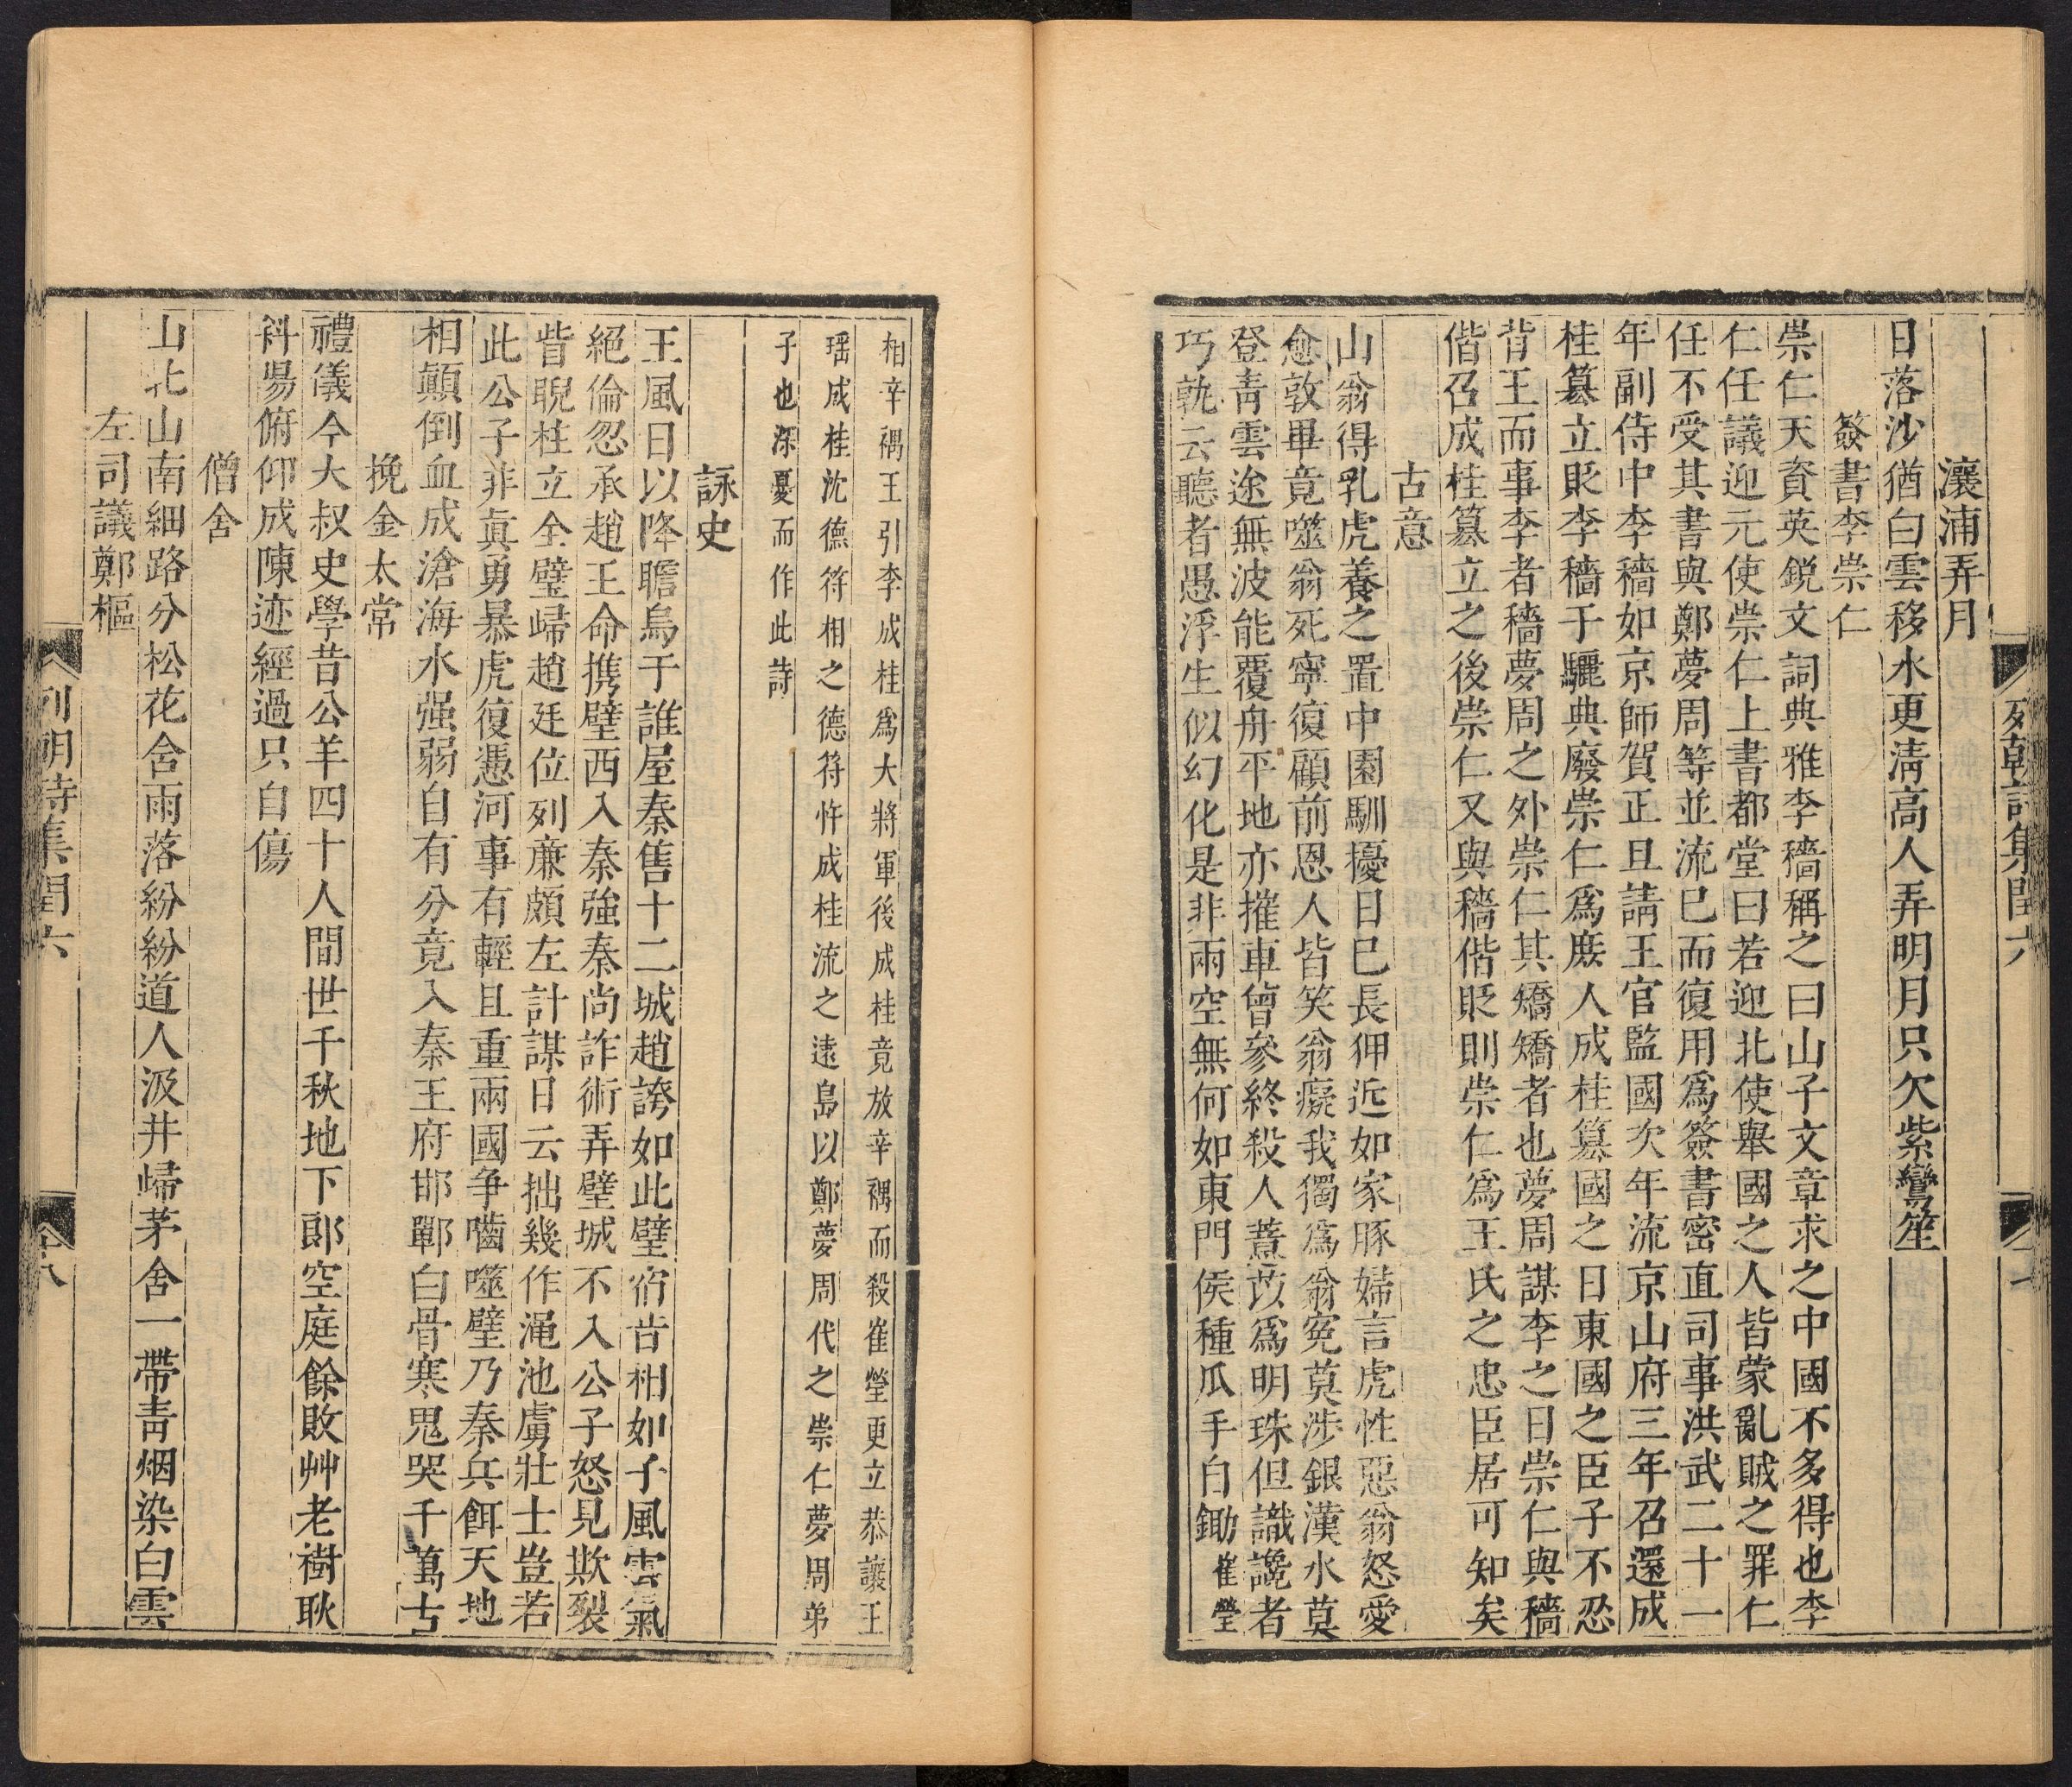 列朝詩集閏六
瀼浦弄月
日落沙猶白雲移水更清高人弄明月只欠紫鸞笙
簽書李崇仁
崇仁天資英銳文詞典雅李穡稱之曰山子文章求之中國不多得也李
仁任議迎元使崇仁上書都堂曰若迎北使舉國之人皆蒙亂賊之罪仁
任不受其書與鄭夢周等並流已而復用爲簽書密直司事洪武二十一
年副侍中李穡如京師賀正且請王官監國次年流京山府三年召還成
桂篡立貶李穡于驪興廢崇仁爲庶人成桂篡國之日東國之臣子不忍
背王而事李者穡夢周之外崇仁其矯矯者也夢周謀李之日崇仁與穡
偕召成桂篡立之後崇仁又與穡偕貶則崇仁爲王氏之忠臣居可知矣
古意
山翁得乳虎養之置中園馴擾日已長狎近如家豚婦言虎性惡翁怒愛
愈敦畢竟噬翁死寧復顧前恩人皆笑翁癡我獨爲翁冤莫涉銀漢水莫
登靑雲途無波能覆舟平地亦摧車曾參終殺人薏苡爲明珠但識讒者
巧孰云聽者愚浮生似幻化是非兩空無何如東門侯種瓜手自鋤崔瑩
相辛禑王引李成桂爲大將軍後成桂竟放辛禑而殺崔瑩更立恭讓王
瑤成桂沈德符相之德符忤成桂流之遠島以鄭夢周代之崇仁夢周弟
子也深憂而作此詩
詠史
王風日以降瞻烏于誰屋秦售十二城趙誇如此璧宿昔相如子風雲氣
絕倫忽承趙王命携璧西入秦強秦尚詐術弄璧城不入公子怒見欺裂
眥睨柱立全璧歸趙廷位列亷頗左計謀日云拙幾作澠池虜壯士豈若
此公子非眞勇暴虎復憑河事有輕且重兩國争嚙噬璧乃秦兵餌天地
相顚倒血成滄海水强弱自有分竟入秦王府邯鄲白骨寒鬼哭千萬古
挽金太常
禮儀今大叔史學昔公羊四十人間世千秋地下郎空庭餘敗艸老樹耿
斜陽俯仰成陳迹經過只自傷
僧舍
山北山南細路分松花含雨落紛紛道人汲井歸茅舍一帶靑烟染白雲
左司議鄭樞
列朝詩集閏六
八